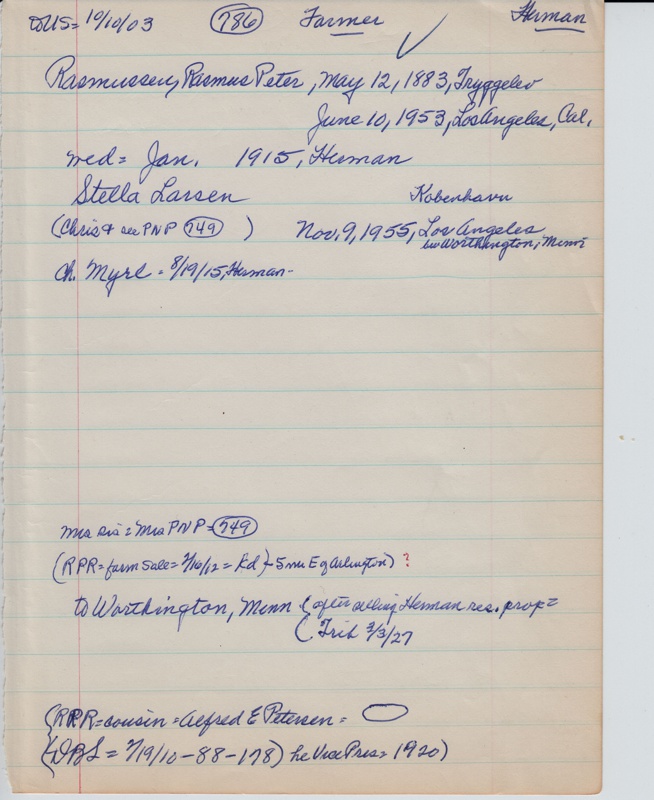 to US = 10/10/03 786 Farmer Herman
Rasmussen, Rasmus Peter, May 12, 1883, Tryggelev
June 10, 1953, Los Angeles, Cal.
wed = Jan. 1915, Herman
Stella Larsen Kobenhavn
(Chris & see PNP 749 ) Nov. 9, 1955, Los Angeles
liv Worthington, Minn
ch. Myrl = 8/19/15, Herman -
Mrs sis = Mrs PNP = 749
(RPR = farm sale = 2/16/12 = Rd - 5 mi E of Arlington) ?
to Worthington, Minn (after selling Herman res. prop =
(Trib 3/3/27
(RPR = cousin = Alfred E Petersen =
(DBL = 7/19/10 - 88 - 178) he Vice Pres = 1920)